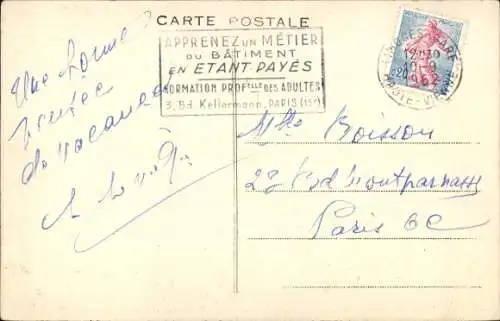 CARTE POSTALE
APPRENEZ UN MÉTIER
DU BÂTIMENT
EN ETANT PAYÉS
FORMATION PROFELLE DES ADULTES
3, Bd. Kellermann, PARIS (13e)
LIMOGES GARE
1962
HAUTE-VIENNE
Une bonne
pensée
de vacances
Mlle Boisson
28 Bd Montparnasse
Paris 6e